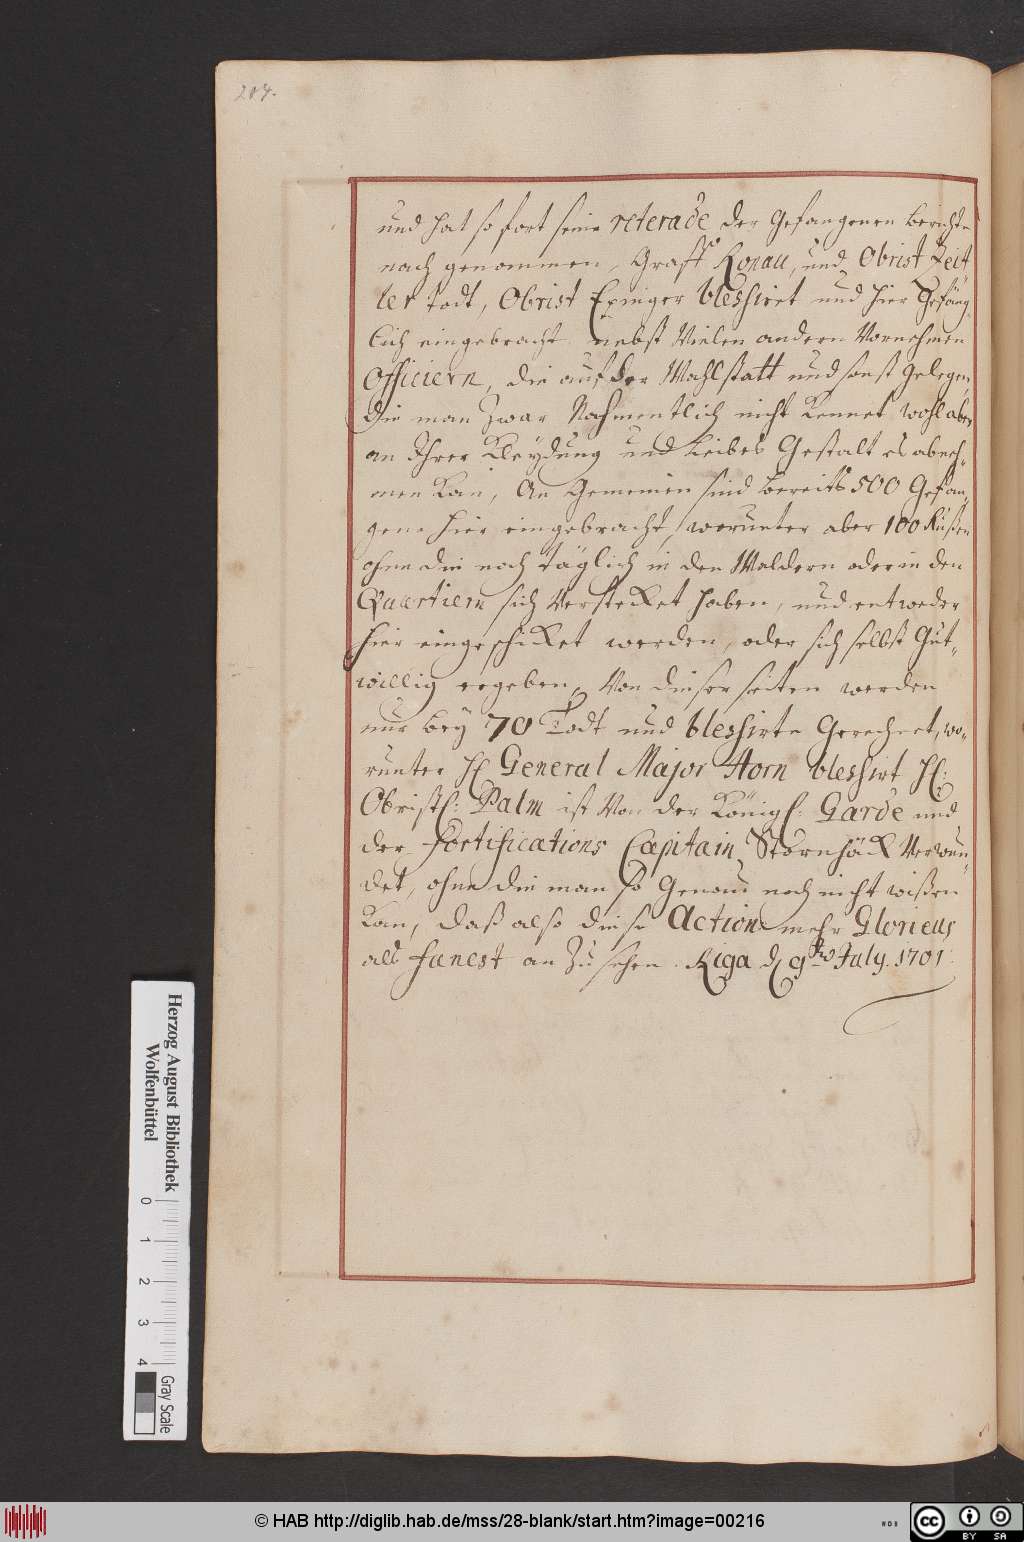 204.
und hat so fort seine reterade der Gefangenen berichte
nach genommen, Graff Ronau, und Obrist Zeit-
ler todt, Obrist Epinger blessiret und hier Gefäng-
lich eingebracht nebst Vielen andern Vornehmen
Officiern, die auf der Wahlstatt und sonst gelegen,
die man Zwar Nahmentlich nicht Kennet wohl aber
an Ihrer Kleydung und Leibes Gestalt es abneh-
men Kan, An Gemeinen sind bereits 500 Gefan-
gene hier eingebracht, worunter aber 100 Rußen
ohne die noch täglich in den Waldern oder in den
Quartiern sich Verstecket haben, und entweder
hier eingeschicket werden, oder sich selbst Gut-
willig ergeben, Von dieser seiten werden
nur bey 70 Todt und blessirte Gerechnet, wo-
runter H. General Major Horn blessirt H:
Obristl: Palm ist Von der Königl: Garde und
der Fortifications Capitain Stornhäck Verwun-
det, ohne die man so Genau noch nicht wißen
Kan, daß also diese Action mehr Glorieus
als funest an Zu sehen. Riga d 9 July. 1701.
Herzog August Bibliothek
Wolfenbüttel
0 1 2 3 4
Gray Scale
© HAB http://diglib.hab.de/mss/28-blank/start.htm?image=00216
WDB
CC BY SA